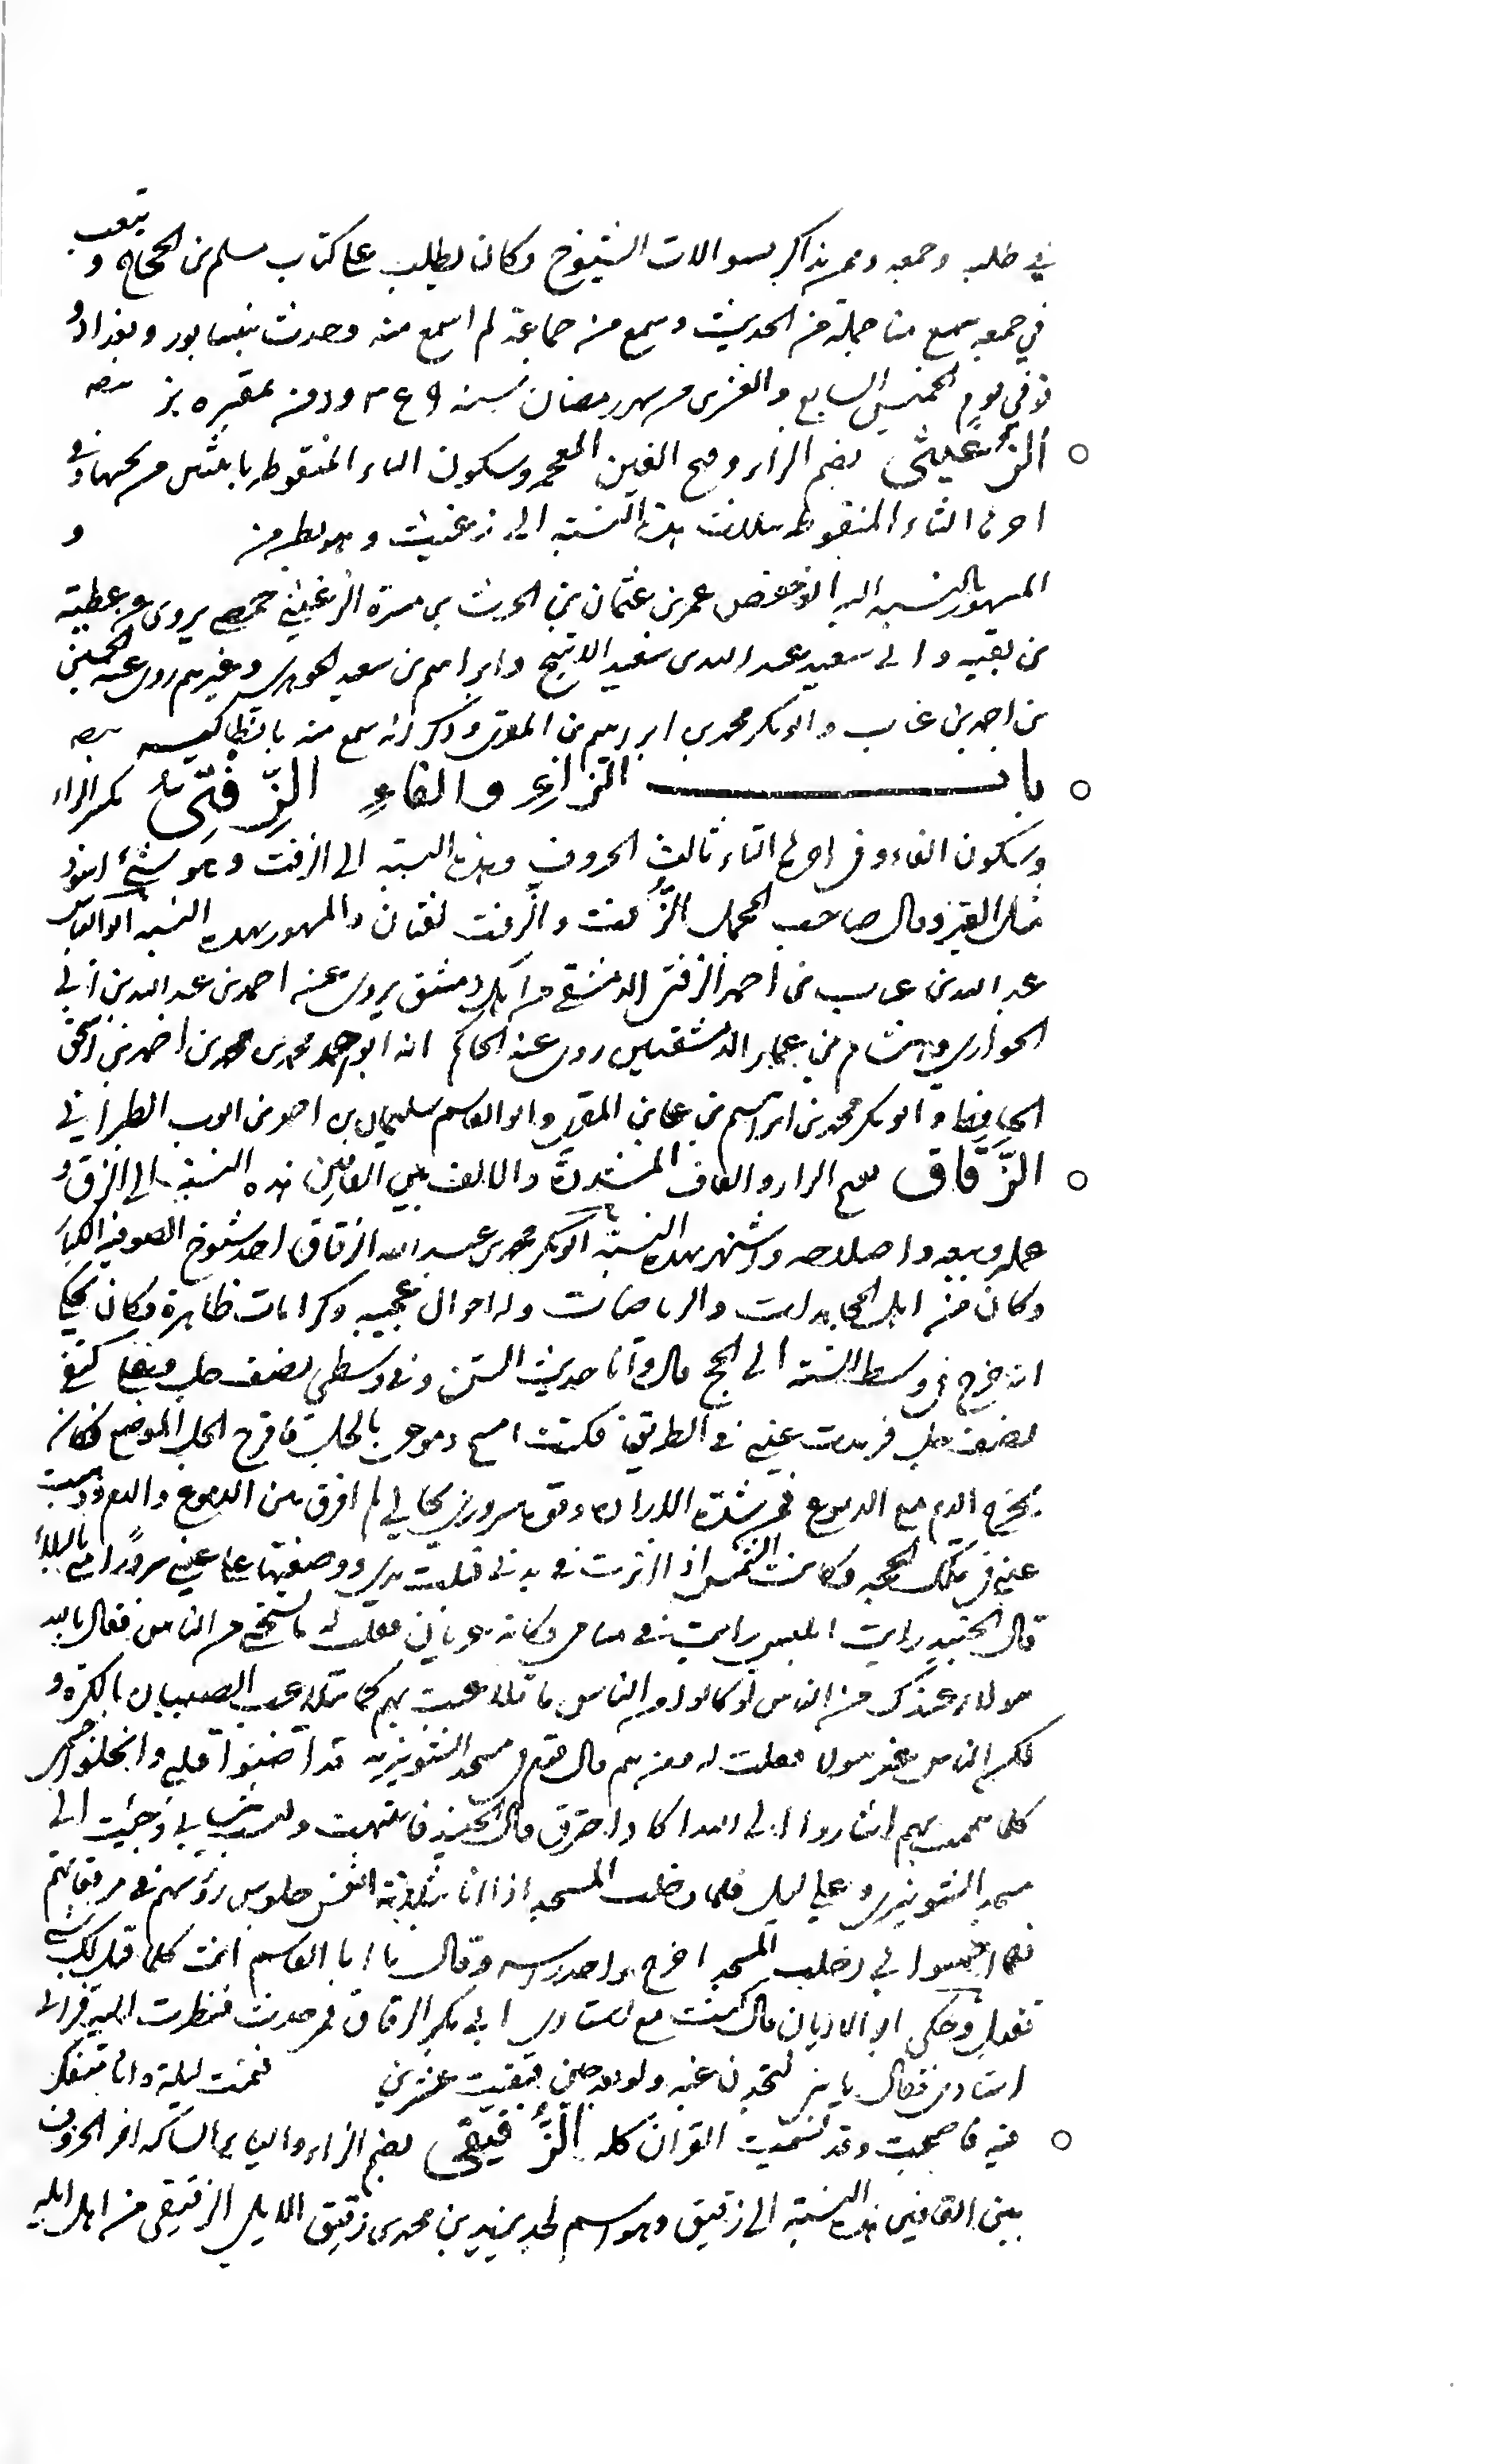 في طلبه وجمعه وممن يذاكر بسوالات الشيوخ وكان يطلب على كتاب مسلم بن الحجاج و تعب
في جمعه سمع منا جملة من الحديث وسمع من جماعة لم اسمع منه وحدث بنيسابور وبغداد و
توفي يوم الخميس السابع والعشرين من شهر رمضان سنة ودفن بمقبرة
الزُّغيثى بضم الزاء وفتح الغين المعجمه وسكون الياء المنقوطه باثنتين من تحتها وفي
اخرها الثاء المنقوطه بثلاث هذه النسبة الى زغيث وهو بطن من و
المشهور بالنسبه اليه ابو حفص عمر بن عثمان بن الحرث بن مسرة الزغيثي حمصي يروى عن عطية
بن بقيه و ابي سعيد عبد الله بن سعيد الاشج وابراهيم بن سعيد الجوهري وغيرهم روى عنه الحسين
بن احمد بن عتاب وابو بكر محمد بن ابرهيم بن المقري وذكر انه سمع منه بانطاكيه
باب الزاءِ والفاءِ الزِّفْتِىّ بكسر الزاء
وسكون الفاء وفى اخرها التاء ثالث الحروف وهذه النسبة الى الزفت وهو شئ اسود
مثل القير وقال صاحب المجمل الزفت والزفت لغتان والمشهور بهذه النسبه ابو العباس
عبد الله بن عتاب بن احمد الزفتى الدمشقي من اهل دمشق يروى عنه احمد بن عبد الله بن ابي
الحوارى وهشام بن عمار الدمشقيين روى عنه الحاكم ابو احمد محمد بن محمد بن احمد بن اسحق
الحافظ وابو بكر محمد بن ابراهيم بن على بن المقرى وابو القاسم سليمان بن احمد بن ايوب الطبراني
الزَّقاق بفتح الزاء والقاف المشددة والالف بين القافين هذه النسبة الى الزق و
عمله وبيعه واصلاحه واشتهر بهذه النسبة ابو بكر محمد بن عبد الله الزقاق احد شيوخ الصوفيه الكبار
وكان من اهل المجاهدات والرياضات وله احوال عجيبه وكرامات ظاهرة وكان يحكى
انه خرج في وسط السنة الى الحج قال وانا حديث السن وفي وسطى نصف جل وعلى كتفى
نصف جل فرمدت عيني في الطريق فكنت امسح دموعى بالجل فاقرح الجل الموضع فكان
يخرج الدم مع الدموع فمن شدة الارادة وقوة سرورى بحالي لم افرق بين الدموع والدم وذهبت
عيني في تلك الحجه وكانت الشمس اذا اثرت في بدنى قبلت يدى ووضعتها على عيني سرورًا مني بالبلاء
قال الجنيد رايت ابليس في منامى وكانه عريان فقلت له ما تستحي من الناس فقال بالله
هولاء عندك من الناس لو كانوا من الناس ما تلاعبت بهم كما تتلاعب الصبيان بالكرة و
لكن الناس غير هولا فقلت له ومن هم قال قوم في مسجد الشونيزيه قد اضنوا قلبي وانحلوا جسمي
كلما هممت بهم اشاروا الى الله اكاد احترق قال الجنيد فانتبهت ولبست ثيابي وجئت الى
مسجد الشونيزى وعلي ليل فلما دخلت المسجد اذا انا بثلاثة انفس جلوس رؤسهم في مرقعاتهم
فلما احسوا بي دخلت المسجد اخرج واحد راسه وقال يا ابا القاسم انت كلما قيل لك شئ
تقبل وحكى ابو الاديان قال كنت مع استادى ابي بكر الزقاق فمر حدث فنظرت اليه فراني
استادى فقال يا بنى لتجدن غبه ولو بعد حين فبقيت عشرين فنمت ليلة وانا متفكر
فيه فاصبحت وقد نسيت القران كله الزُّقيقى بضم الزاء والياء الساكنه اخر الحروف
بين القافين هذه النسبة الى زقيق وهو اسم لجد يزيد بن محمد بن زقيق الايلى الزقيقى من اهل ايله